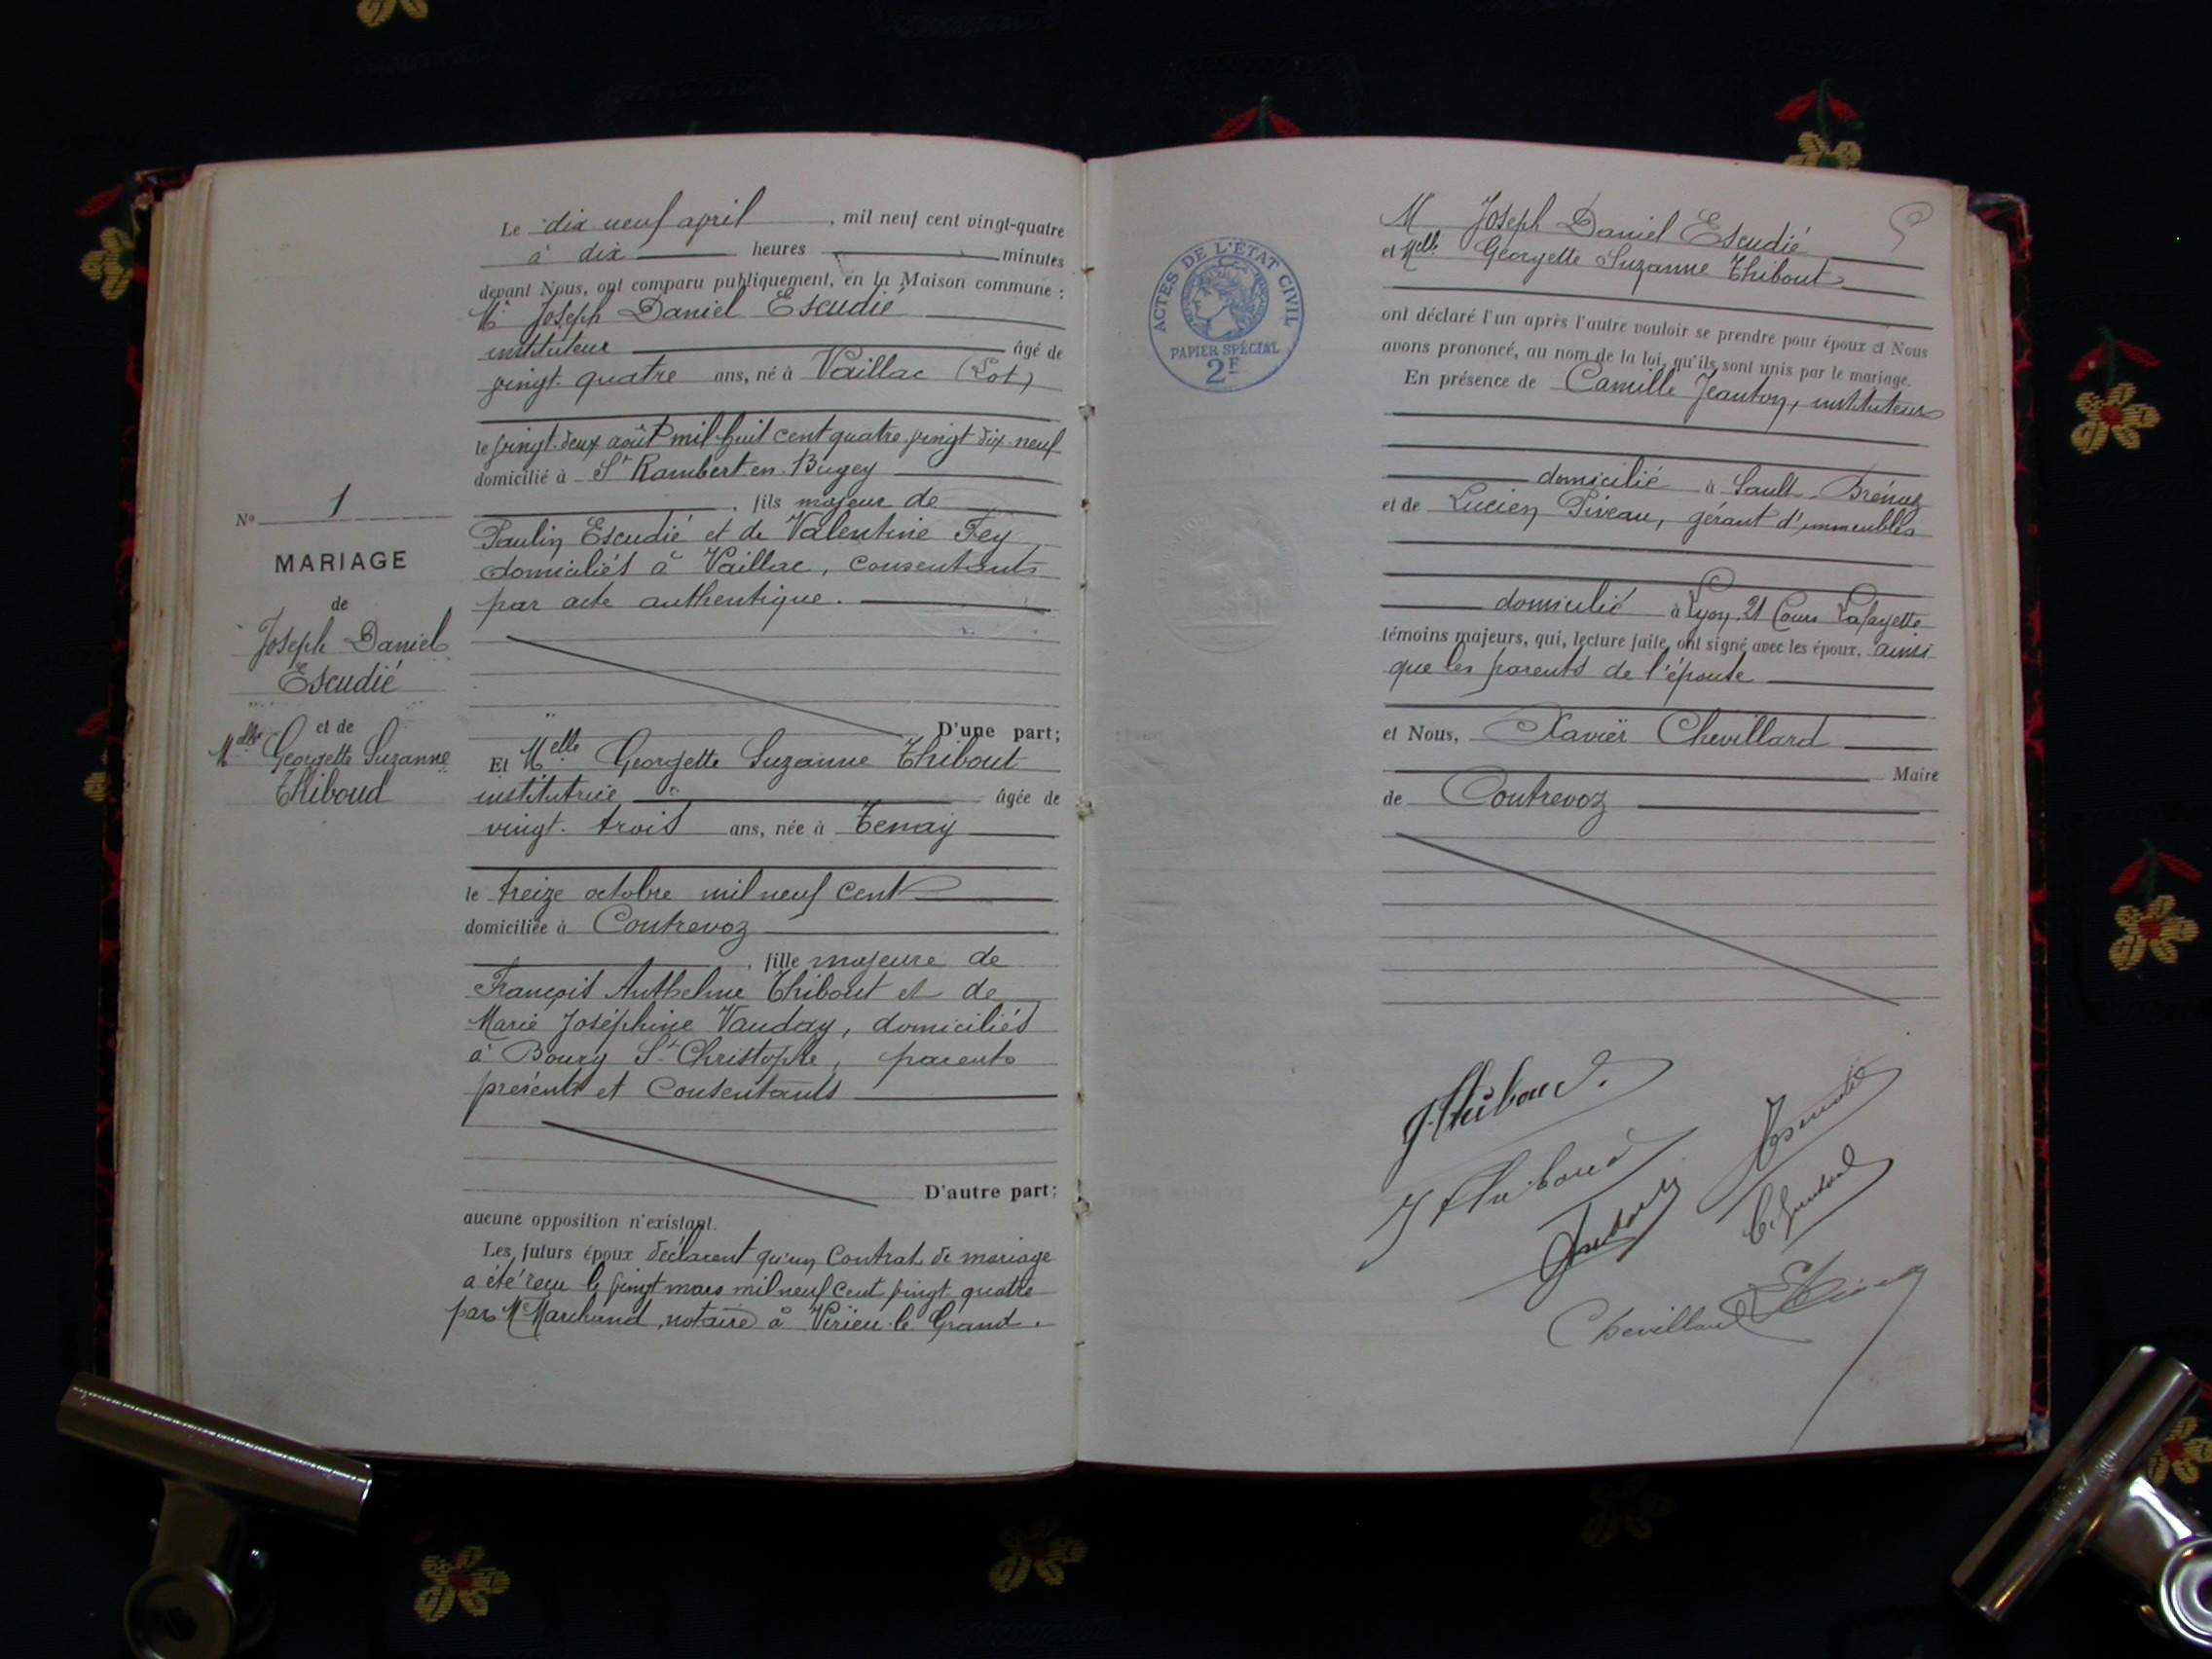 Le dix neuf april, mil neuf cent vingt-quatre
à dix heures minutes
devant Nous, ont comparu publiquement, en la Maison commune :
Mr Joseph Daniel Escudié
instituteur âgé de
vingt-quatre ans, né à Vaillac (Lot)
le vingt-deux août mil huit cent quatre vingt dix-neuf
domicilié à St Rambert-en-Bugey
, fils majeur de
Paulin Escudié et de Valentine Fey
domiciliés à Vaillac, consentants
par acte authentique.
D'une part;
No 1
MARIAGE
de
Joseph Daniel
Escudié
et de
Melle Georgette Suzanne
Thiboud
Et Melle Georgette Suzanne Thibout
institutrice âgée de
vingt-trois ans, née à Tenay
le treize octobre mil neuf cent
domiciliée à Contrevoz
, fille majeure de
François Anthelme Thibout et de
Marie Joséphine Vauday, domiciliés
à Bourg St Christophe, parents
présents et consentants
D'autre part;
aucune opposition n'existant.
Les futurs époux déclarent qu'un contrat de mariage
a été reçu le vingt mars mil neuf cent vingt quatre
par Me Marchand, notaire à Virieu-le-Grand.
ACTES DE L'ÉTAT CIVIL
PAPIER SPÉCIAL
2F
M Joseph Daniel Escudié
et Melle Georgette Suzanne Thibout
ont déclaré l'un après l'autre vouloir se prendre pour époux et Nous
avons prononcé, au nom de la loi, qu'ils sont unis par le mariage.
En présence de Camille Jeanton, instituteur
domicilié à Sault-Brénaz
et de Lucien Piveau, gérant d'immeubles
domicilié à Lyon, 21 Cours Lafayette
témoins majeurs, qui, lecture faite, ont signé avec les époux, ainsi
que les parents de l'épouse
et Nous, Xavier Chevillard
Maire
de Contrevoz
G. Thiboud.
Thiboud
Chevillard